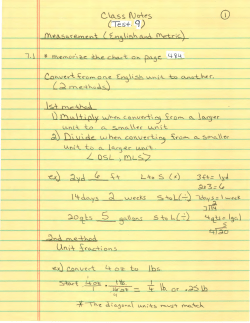 Class Notes
(Test 9)
①
Measurement (English and Metric)
7.1 * memorize the chart on page 484
Convert from one English unit to another.
(2 methods)
1st method
1) Multiply when converting from a larger
unit to a smaller unit
2) Divide when converting from a smaller
unit to a larger unit
< DSL, MLS >
ex) 2yd = 6 ft L to S (x) 3ft = 1yd
2x3=6
14days = 2 weeks S to L (÷) 7days = 1 week
20qts = 5 gallons S to L (÷) 4qts = 1gal
4)20
2nd method
Unit fractions
ex) convert 4 oz to lbs
start 4 oz · 1 lb / 16 oz = 1/4 lb or .25 lb
4
* The diagonal units must match